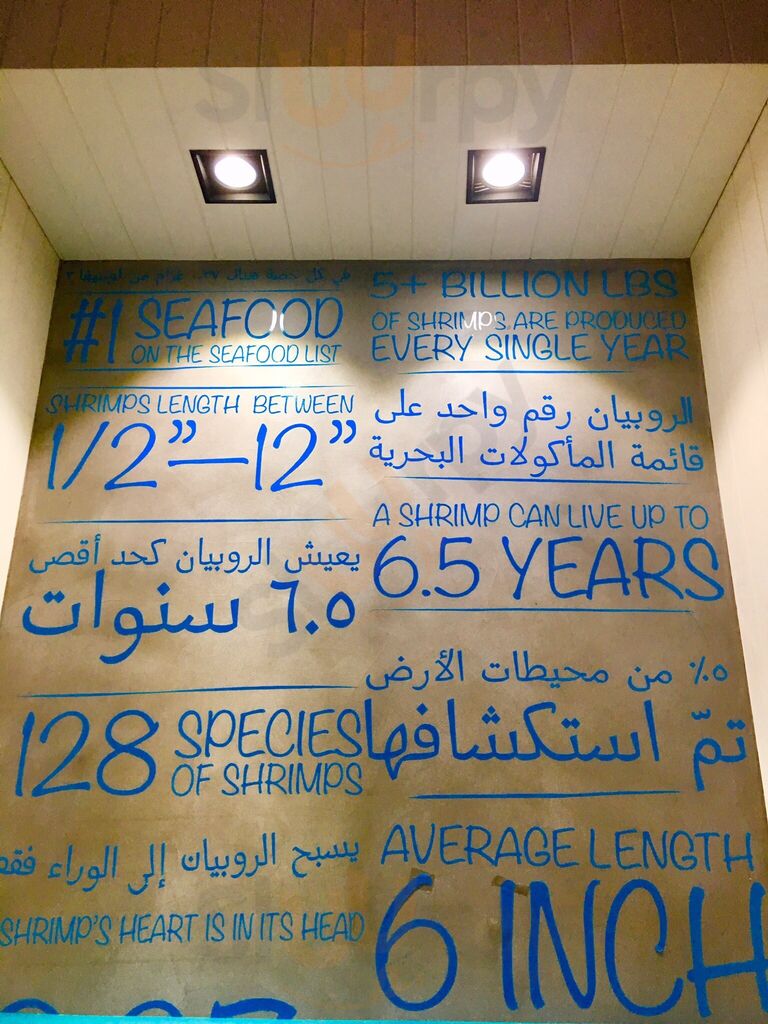 Sluurpy
في كل حصة هناك
#1 SEAFOOD
ON THE SEAFOOD LIST
SHRIMPS LENGTH BETWEEN
1/2”—12”
يعيش الروبيان كحد أقصى
٦.٥ سنوات
128 SPECIES
OF SHRIMPS
يسبح الروبيان إلى الوراء فقط
SHRIMP'S HEART IS IN ITS HEAD
5+ BILLION LBS
OF SHRIMPS ARE PRODUCED
EVERY SINGLE YEAR
الروبيان رقم واحد على
قائمة المأكولات البحرية
A SHRIMP CAN LIVE UP TO
6.5 YEARS
٥٪ من محيطات الأرض
تمّ استكشافها
AVERAGE LENGTH
6 INCH